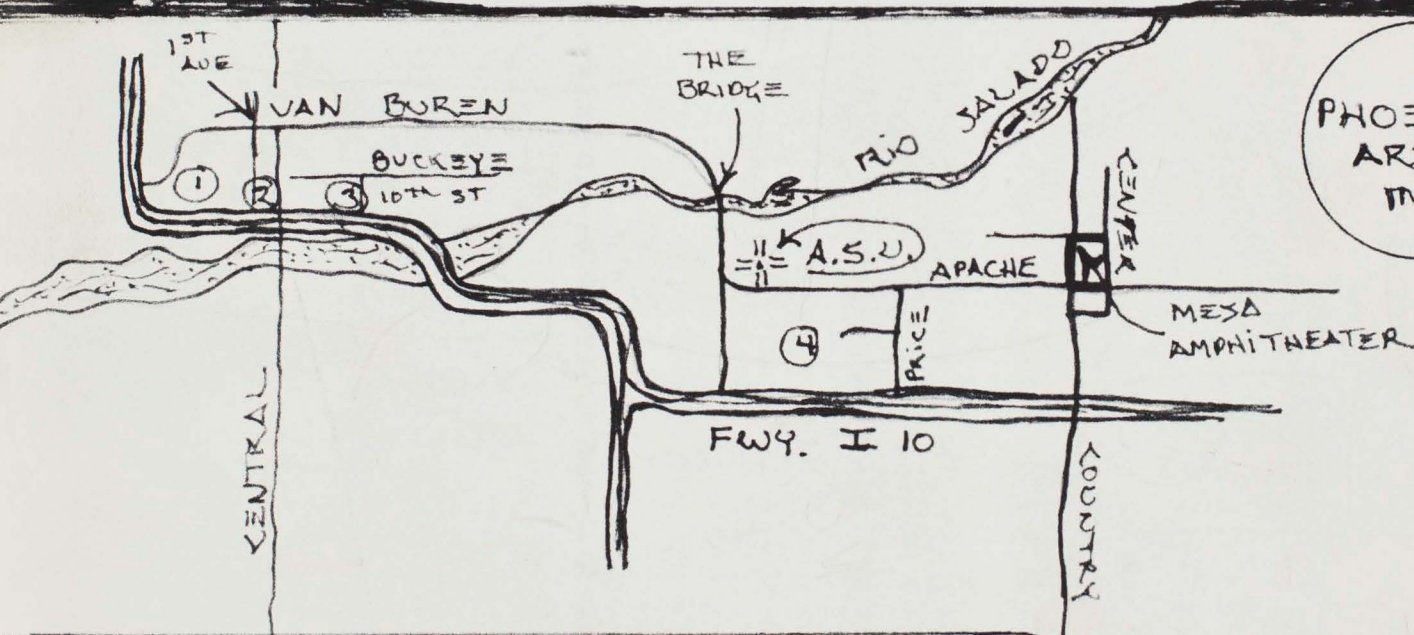 1ST
AVE
VAN BUREN
THE
BRIDGE
RIO SALADO
BUCKEYE
10TH ST
1
2
3
A.S.U.
APACHE
CENTER
MESA
AMPHITHEATER
PRICE
4
FWY. I 10
CENTRAL
COUNTRY